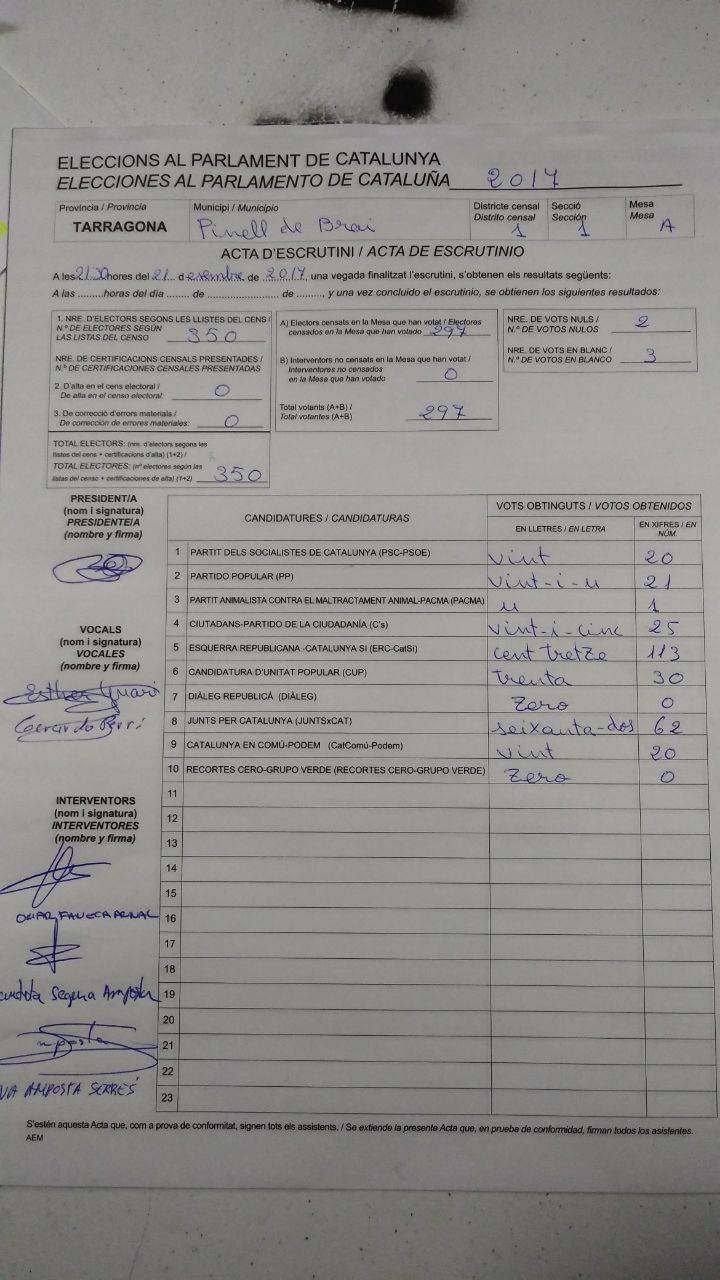 ELECCIONS AL PARLAMENT DE CATALUNYA
ELECCIONES AL PARLAMENTO DE CATALUÑA 2017
Província / Provincia Municipi / Municipio Districte censal Secció Mesa
Distrito censal Sección Mesa
TARRAGONA Pinell de Brai 1 1 A
ACTA D'ESCRUTINI / ACTA DE ESCRUTINIO
A les 21:30 hores del 21 d desembre de 2017, una vegada finalitzat l'escrutini, s'obtenen els resultats següents:
A las .........horas del día ........ de ...................... de ........., y una vez concluido el escrutinio, se obtienen los siguientes resultados:
1. NRE. D'ELECTORS SEGONS LES LLISTES DEL CENS /
N.º DE ELECTORES SEGÚN
LAS LISTAS DEL CENSO 350
NRE. DE CERTIFICACIONS CENSALS PRESENTADES /
N.º DE CERTIFICACIONES CENSALES PRESENTADAS
2. D'alta en el cens electoral /
De alta en el censo electoral: 0
3. De correcció d'errors materials /
De corrección de errores materiales: 0
TOTAL ELECTORS: (nre. d'electors segons les
llistes del cens + certificacions d'alta) (1+2) /
TOTAL ELECTORES: (nº electores según las
listas del censo + certificaciones de alta) (1+2) 350
A) Electors censats en la Mesa que han votat / Electores
censados en la Mesa que han votado 297
B) Interventors no censats en la Mesa que han votat /
Interventores no censados
en la Mesa que han votado 0
Total votants (A+B) /
Total votantes (A+B) 297
NRE. DE VOTS NULS /
N.º DE VOTOS NULOS 2
NRE. DE VOTS EN BLANC /
N.º DE VOTOS EN BLANCO 3
PRESIDENT/A
(nom i signatura)
PRESIDENTE/A
(nombre y firma)
VOCALS
(nom i signatura)
VOCALES
(nombre y firma)
Esther
Gerardo
INTERVENTORS
(nom i signatura)
INTERVENTORES
(nombre y firma)
OMAR
Segura Amposta
AMPOSTA SERRES
CANDIDATURES / CANDIDATURAS VOTS OBTINGUTS / VOTOS OBTENIDOS
EN LLETRES / EN LETRA EN XIFRES / EN NÚM.
1 PARTIT DELS SOCIALISTES DE CATALUNYA (PSC-PSOE) vint 20
2 PARTIDO POPULAR (PP) vint-i-u 21
3 PARTIT ANIMALISTA CONTRA EL MALTRACTAMENT ANIMAL-PACMA (PACMA) u 1
4 CIUTADANS-PARTIDO DE LA CIUDADANÍA (C's) vint-i-cinc 25
5 ESQUERRA REPUBLICANA -CATALUNYA SI (ERC-CatSi) cent tretze 113
6 CANDIDATURA D'UNITAT POPULAR (CUP) trenta 30
7 DIÀLEG REPUBLICÀ (DIÀLEG) Zero 0
8 JUNTS PER CATALUNYA (JUNTSxCAT) seixanta-dos 62
9 CATALUNYA EN COMÚ-PODEM (CatComú-Podem) vint 20
10 RECORTES CERO-GRUPO VERDE (RECORTES CERO-GRUPO VERDE) Zero 0
11
12
13
14
15
16
17
18
19
20
21
22
23
S'estén aquesta Acta que, com a prova de conformitat, signen tots els assistents. / Se extiende la presente Acta que, en prueba de conformidad, firman todos los asistentes.
AEM